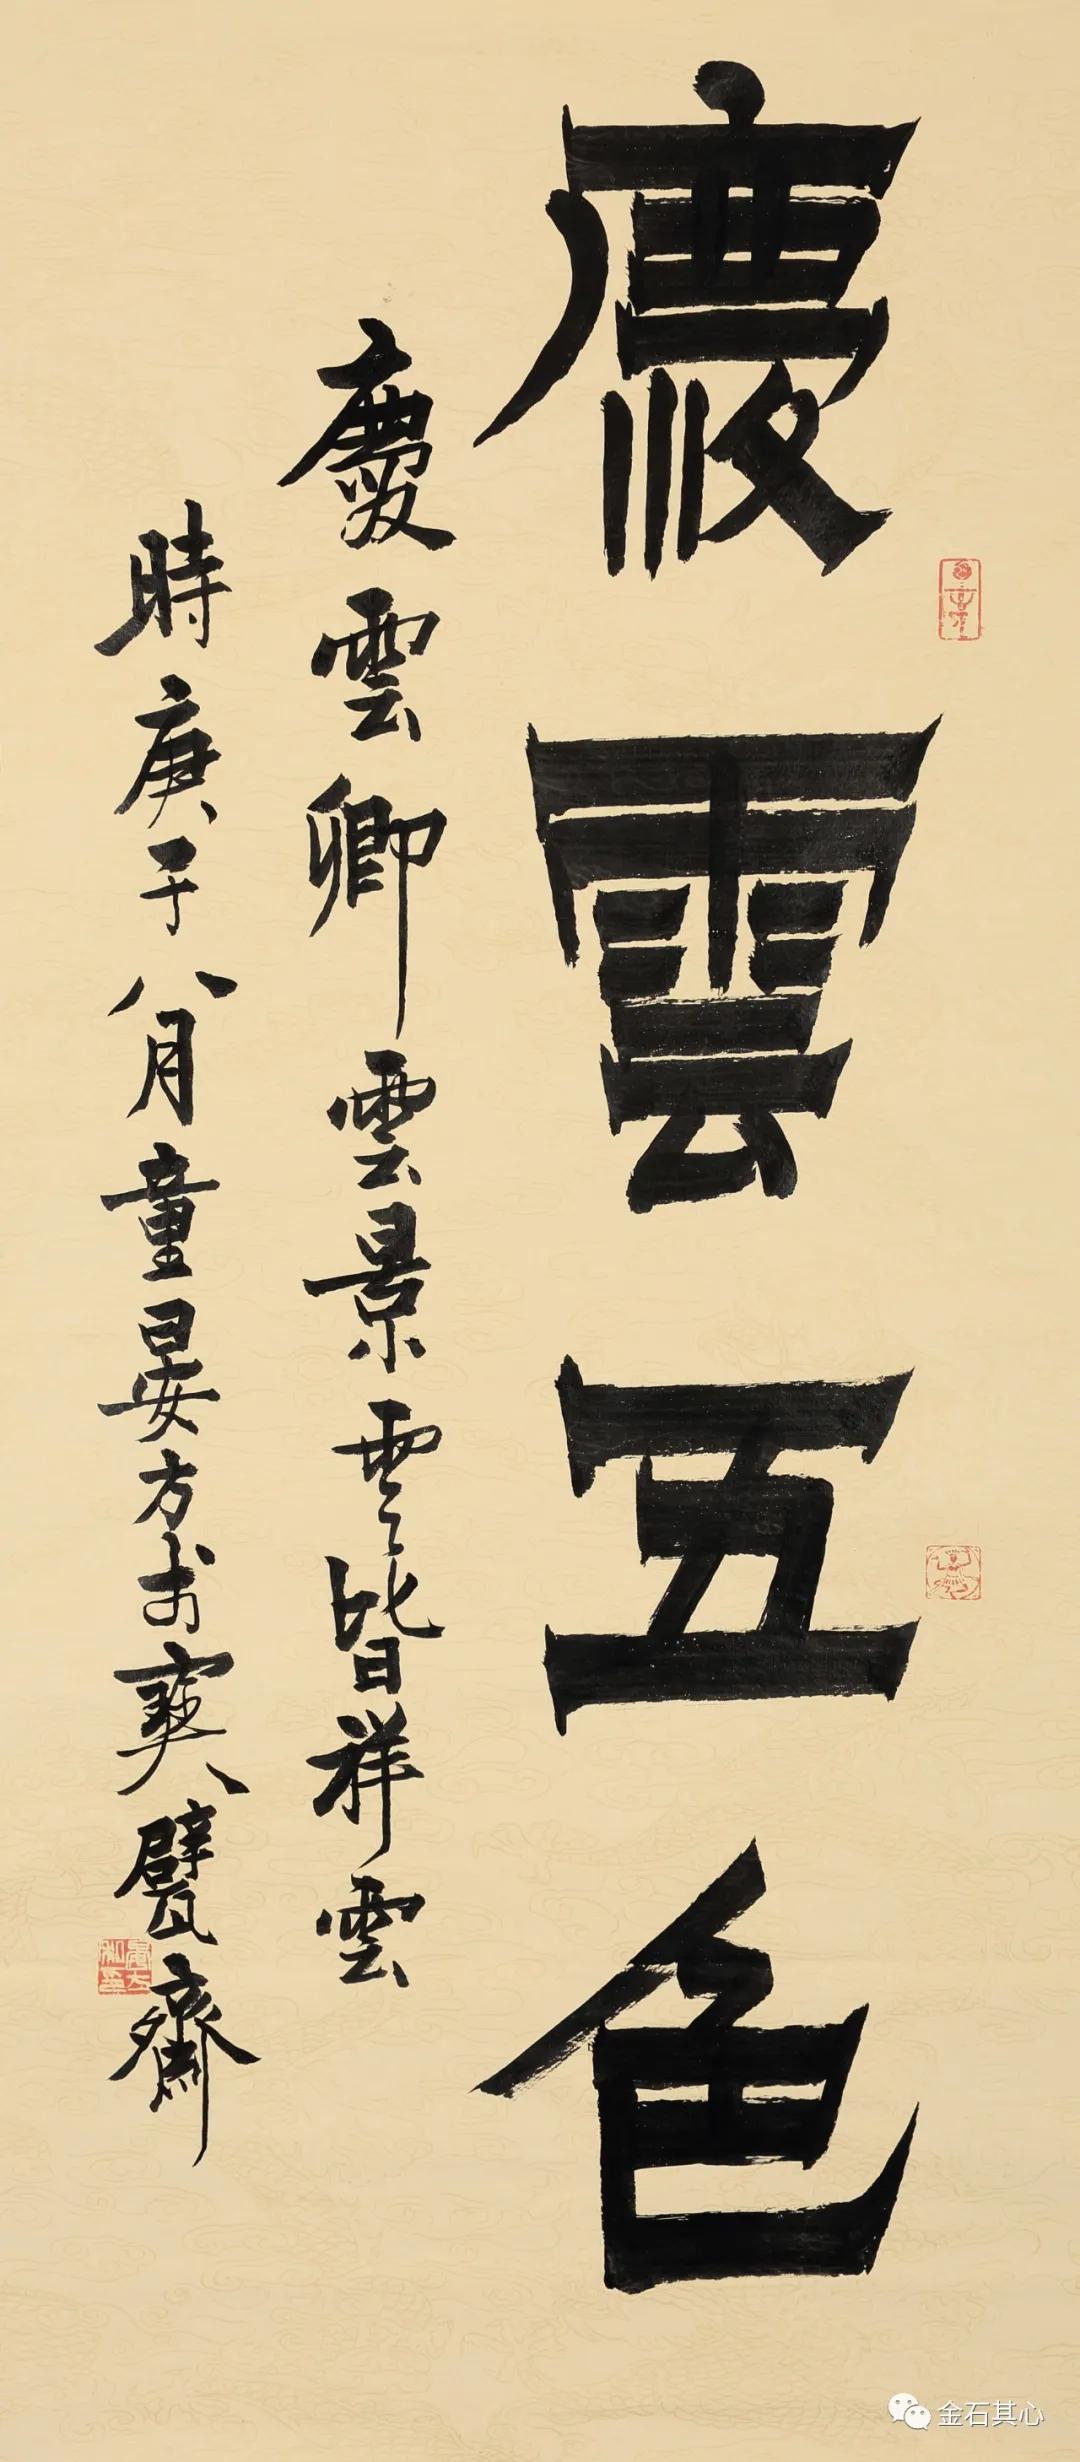 慶雲五色
慶雲卿雲景雲皆祥雲
時庚子八月童晏方書寶甓齋
金石其心